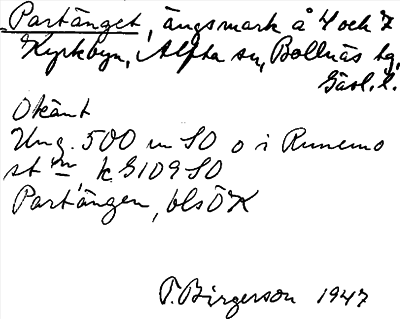 Partänget, ängsmark å 4 och 7
Kyrkbyn, Alfta sn, Bollnäs tg,
Gävl. l.
Okänt
Ung. 500 m SO o i Runemo
st m, k. G109 SO
Partängen, bls ÖK
P. Birgerson 1947